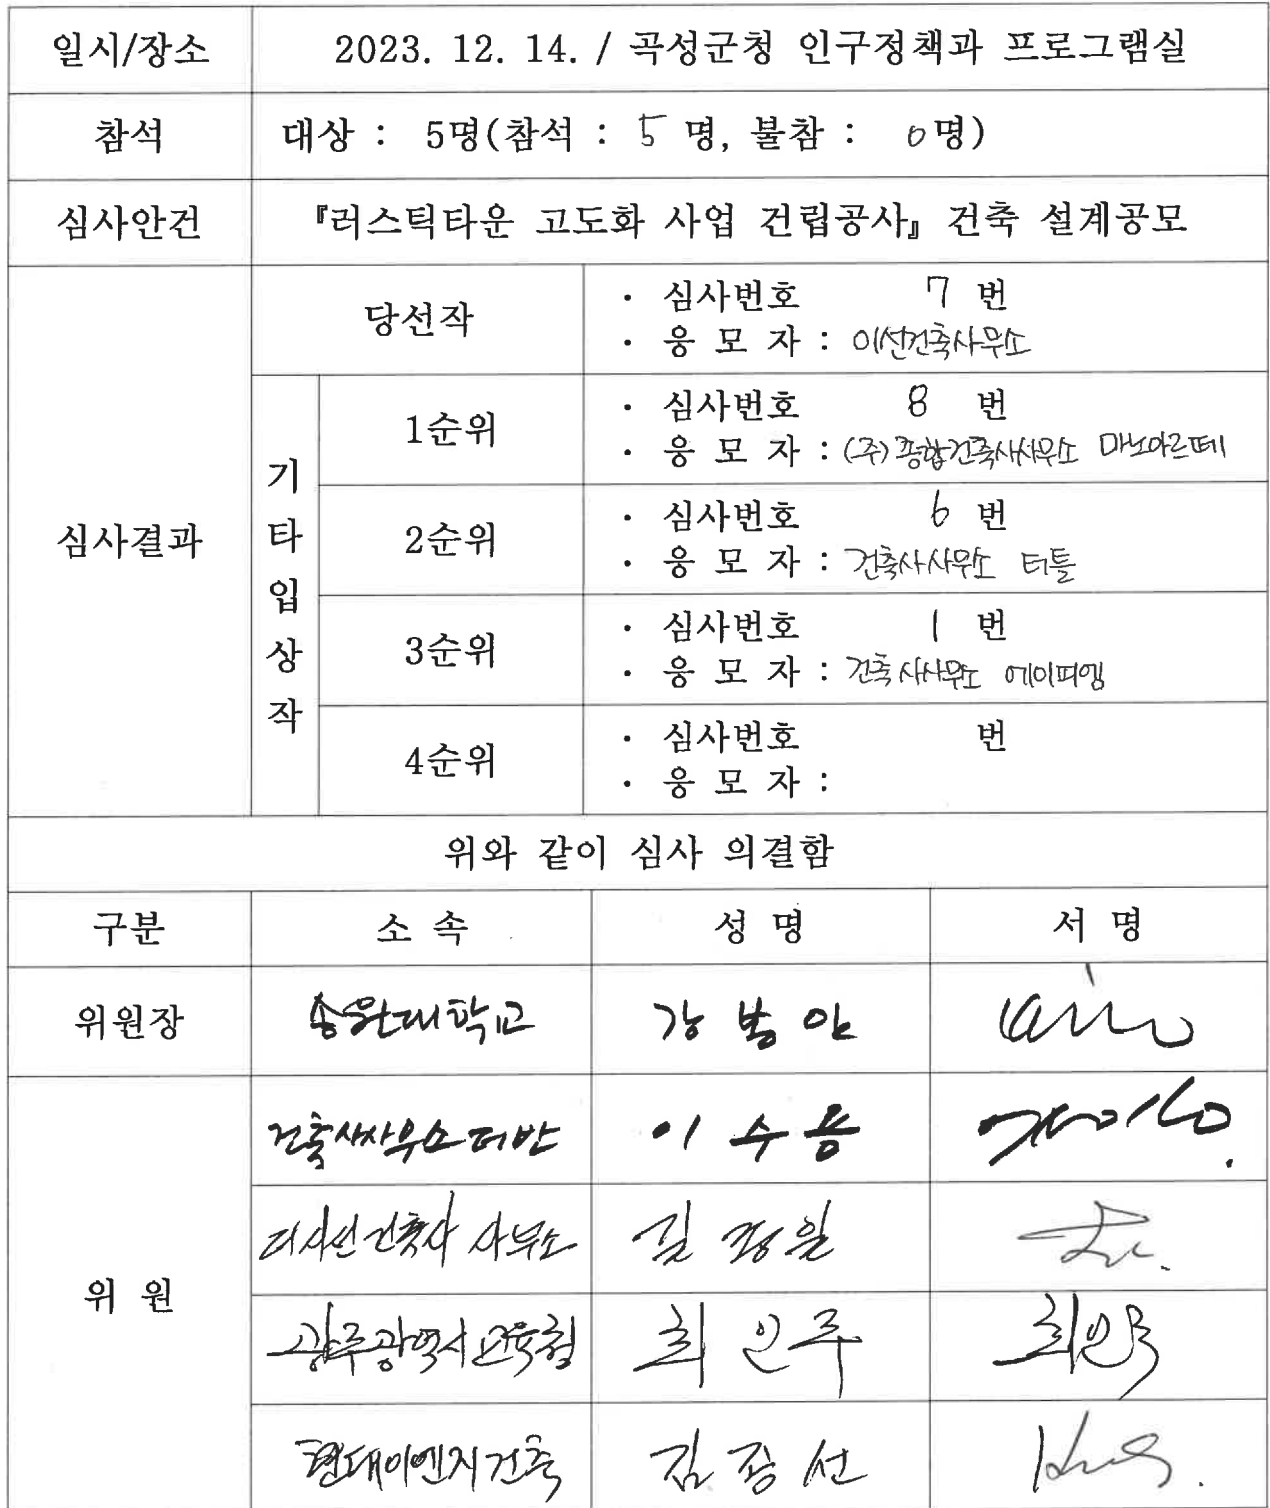 일시/장소 2023. 12. 14. / 곡성군청 인구정책과 프로그램실
참석 대상 : 5명(참석 : 5 명, 불참 : 0명)
심사안건 『러스틱타운 고도화 사업 건립공사』 건축 설계공모
심사결과
당선작
· 심사번호 7 번
· 응 모 자 : 이선건축사무소
기타입상작
1순위
· 심사번호 8 번
· 응 모 자 : (주)종합건축사사무소 마노아르떼
2순위
· 심사번호 6 번
· 응 모 자 : 건축사사무소 터틀
3순위
· 심사번호 1 번
· 응 모 자 : 건축사사무소 에이피엠
4순위
· 심사번호 번
· 응 모 자 :
위와 같이 심사 의결함
구분 소 속 성 명 서 명
위원장 송원대학교 강
위 원
건축사사무소 터반 이수용
건축사 사무소
광주광역시교육청 최인주 최인주
현대이엔지건축 김종선